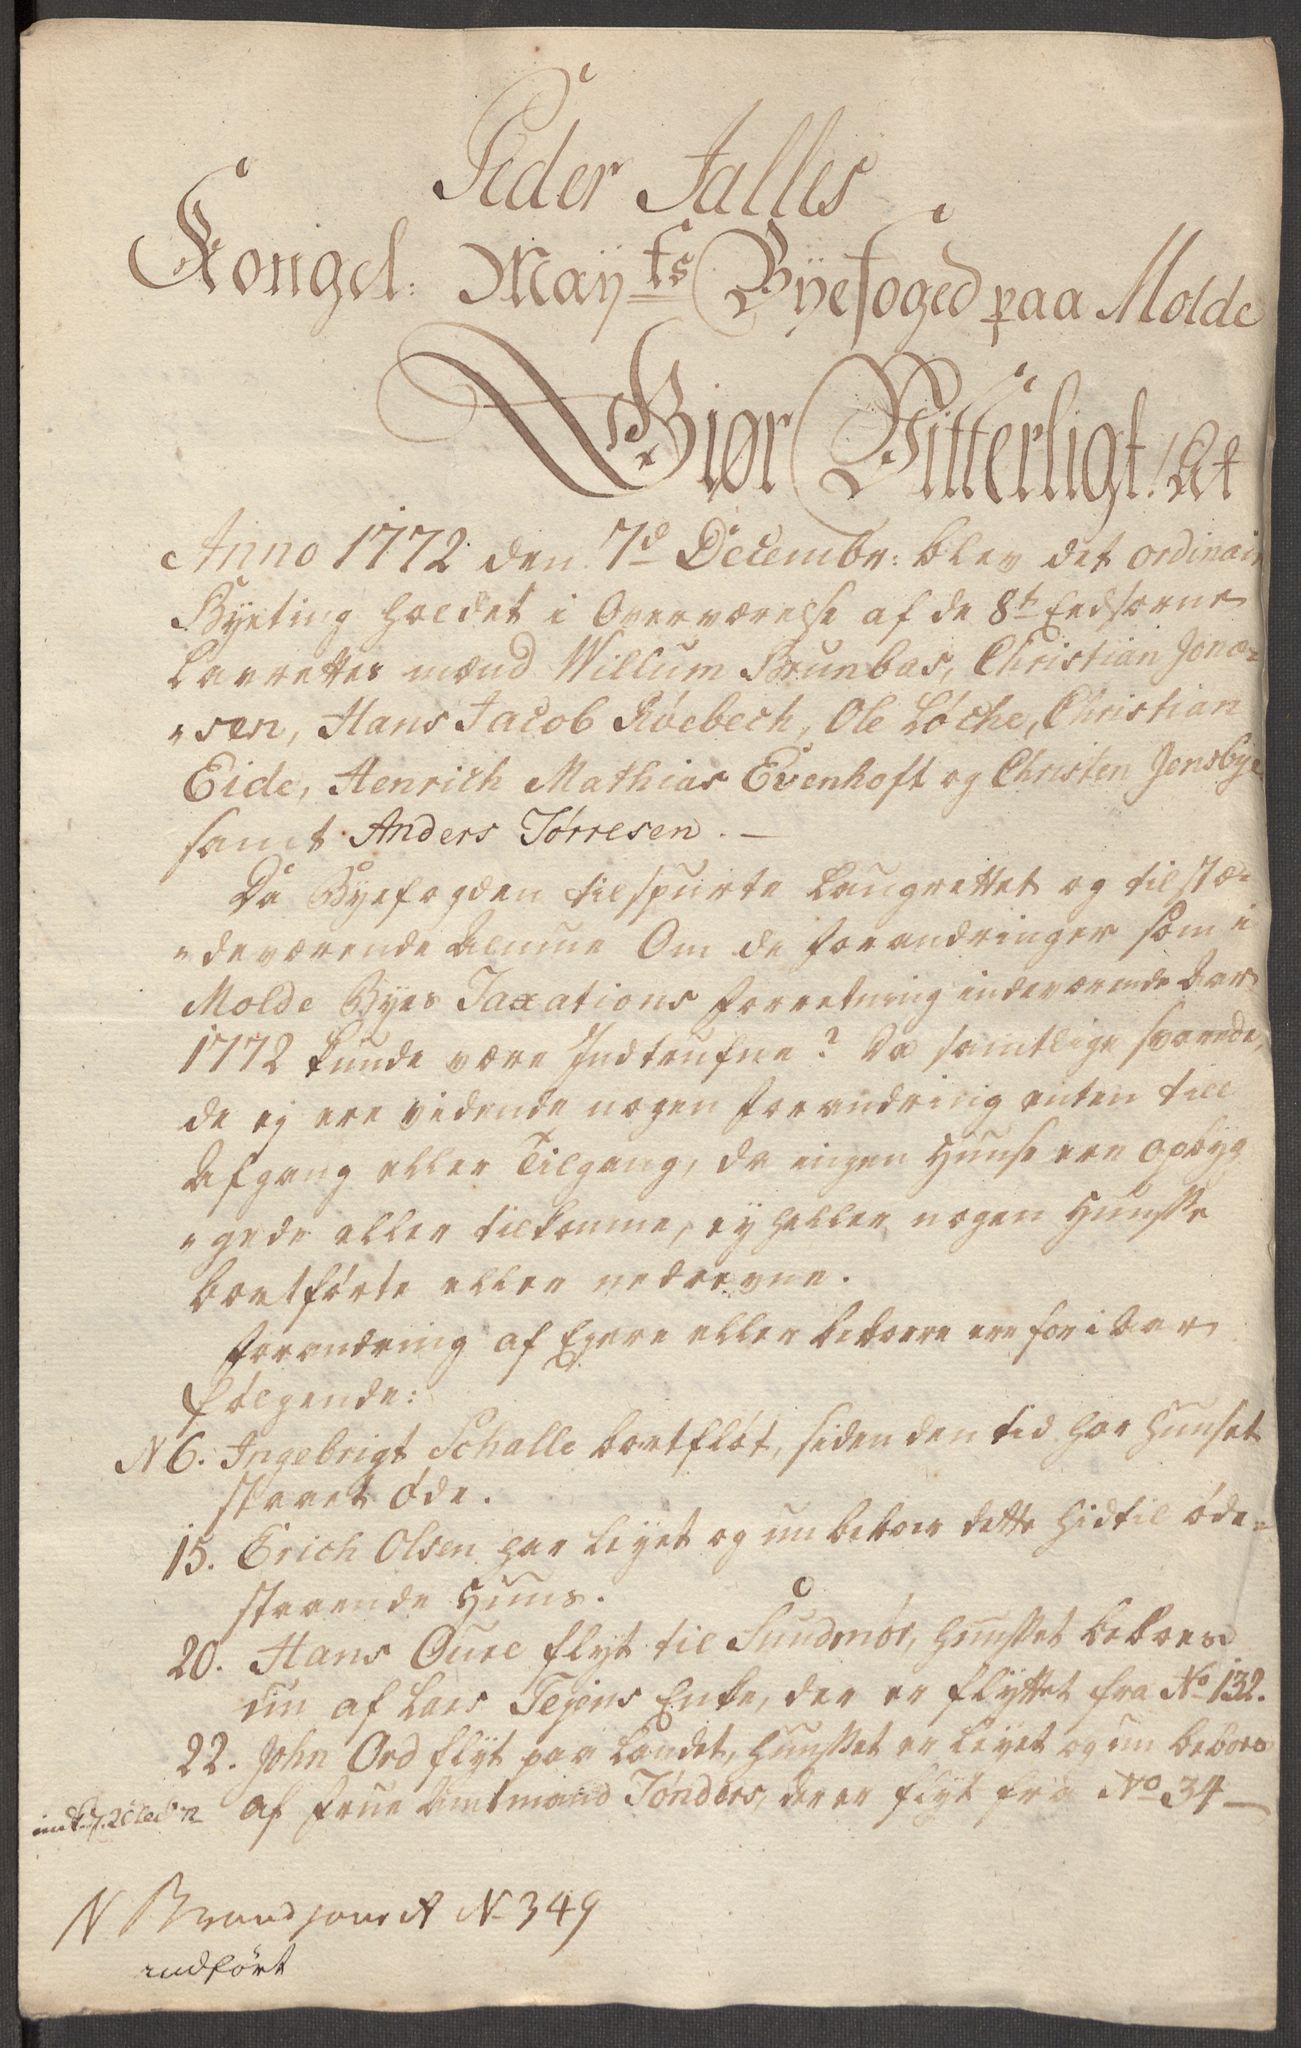 Peder Jalles
Kongel: Mayts Byefoged paa Molde
Giør Vitterligt! At
Anno 1772 den 7d Decembr: blev det ordinair
Byeting holdet i Overværelse af de 8te Eedsorne
Laurettes mænd Willum Brunbas, Christian Jona-
"sen, Hans Jacob Røebech, Ole Løche, Christian
Eide, Henrich Mathias Evenhoft og Christen Jensbye
samt Anders Tørresen. —
Da Byefogden tilspurte Laugrettet og tilstæ-
"deværende Almue Om de forandringer som i
Molde Byes Taxations forretning indeværende Aar
1772 kunde være Indtrufne? Da samtlige svarede,
de ej ere vidende nogen forandring enten till
Afgang eller Tilgang, da ingen Huuse ere opbyg
"gede eller tilkomne, ey heller nogen Huusse
bortførte eller nedrevne.
forandring af Eyere eller beboere ere for i Aar
følgende:
N 6. Ingebrigt Schalle bortfløt, siden den tid har Huuset
staaet øde.
15. Erich Olsen har leyet og nu beboer dette hidtil øde-
staaende Huus.
20. Hans Oure flyt til Sundmør, Huusset beboes
nu af Lars Tejens Enke, der er flyttet fra No 132.
22. John Ord flyt paa Landet, Huusset er leyet og nu beboes
af Frue Amtmand Tønders, der er flyt fra No 34 —
N Brand jour A N 349
indført